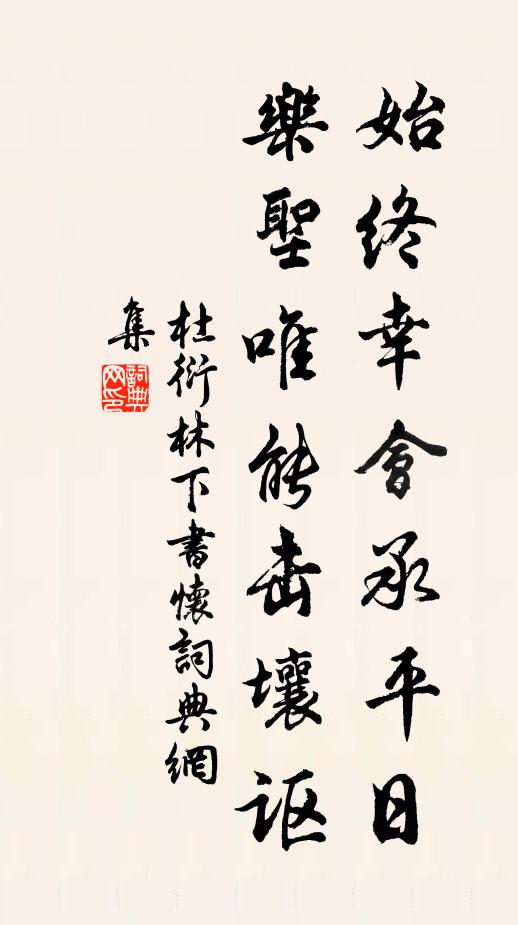 始終幸會承平日
樂聖唯能击壤讴
杜衍林下書懷詞典網
集
詞典
网印